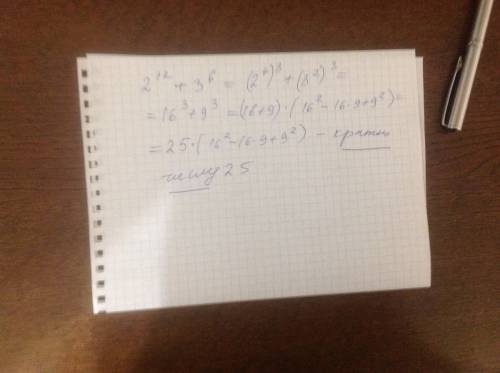 2¹² + 3⁶ = (2⁴)³ + (3²)³ =
= 16³ + 9³ = (16+9)·(16² - 16·9 + 9²) =
= 25·(16² - 16·9 + 9²) - кратно
числу 25